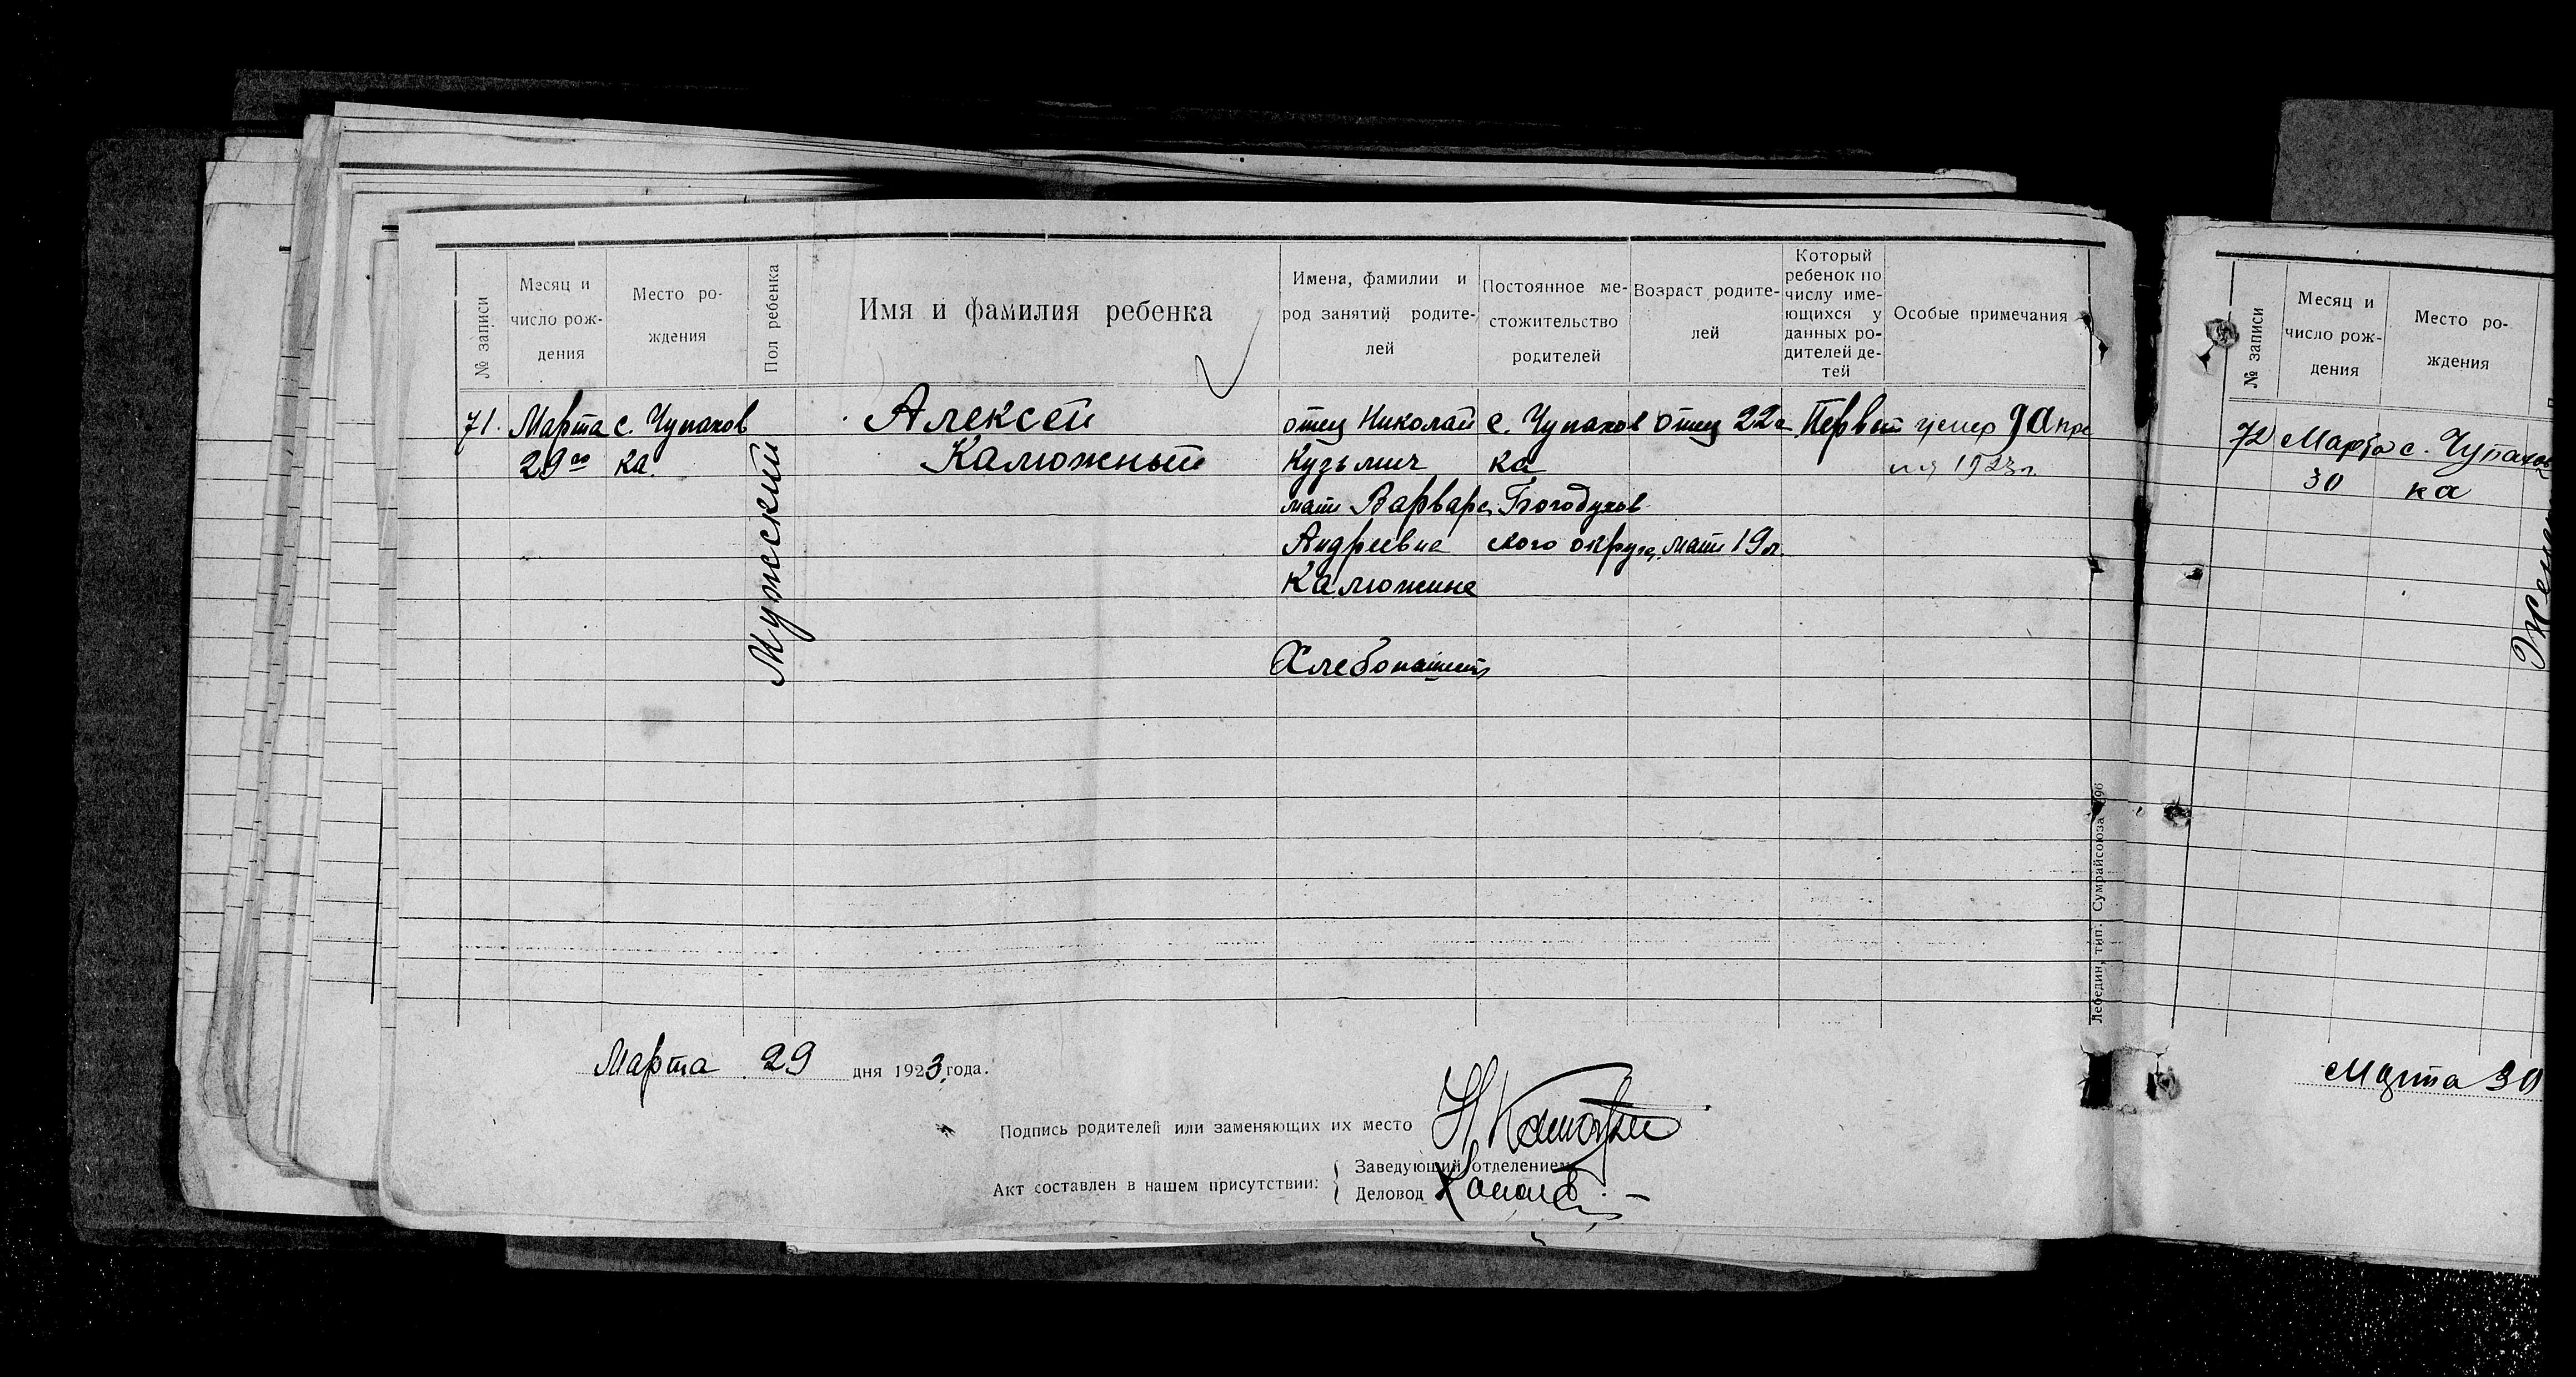 № записи
Месяц и
число рож-
дения
Место ро-
ждения
Пол ребенка
Имя и фамилия ребенка
Имена, фамилии и
род занятий родите-
лей
Постоянное ме-
стожительство
родителей
Возраст родите-
лей
Который
ребенок по
числу име-
ющихся у
данных ро-
дителей де-
тей
Особые примечания
71.
Марта
29го
с. Чупахов
ка
Мужский
Алексей
Калюжный
отец Николай
Кузьмич
мать Варвара
Андреевна
Калюжные
Хлебопашец
с. Чупахов
ка
Богодухов
ского округа
отец 22
мать 19 л.
Первый
умер 9 апре
ля 1923 г.
Лебедин, тип. Сумрайсоюза
Марта 29 дня 1923 года.
Подпись родителей или заменяющих их место
Акт составлен в нашем присутствии:
Заведующий отделением
Деловод
№ записи
Месяц и
число рож-
дения
Место ро-
ждения
72
Марта
30
с. Чупахов
ка
Марта 30